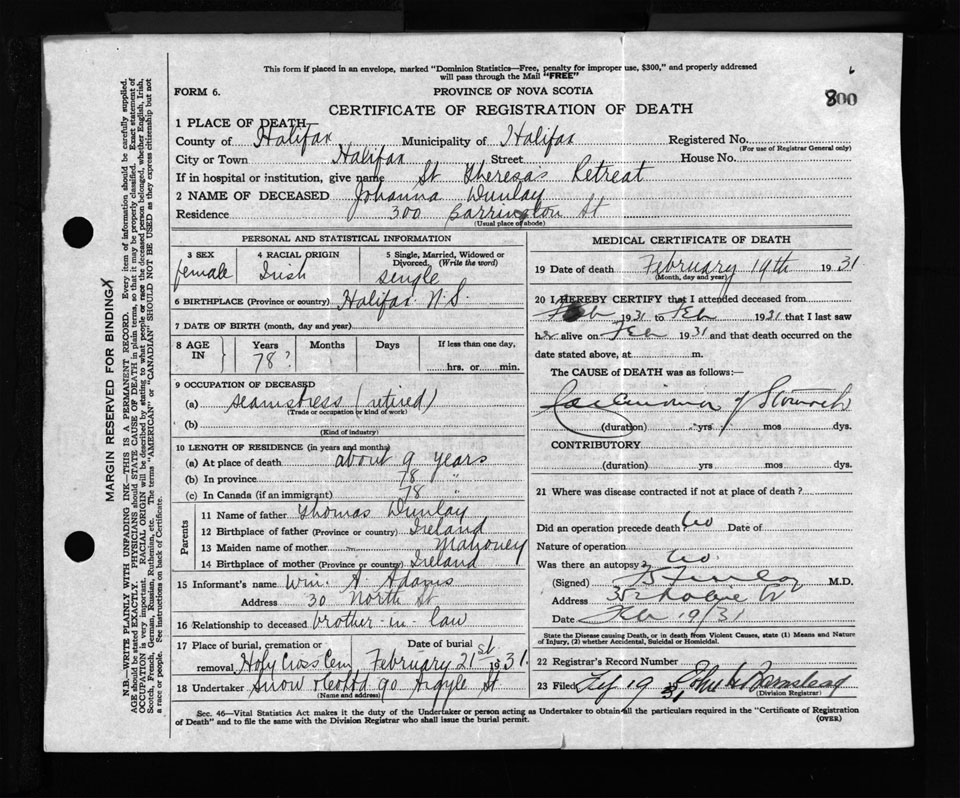 This form if placed in an envelope, marked "Dominion Statistics—Free, penalty for improper use, $300," and properly addressed
will pass through the Mail "FREE"
6
FORM 6.
PROVINCE OF NOVA SCOTIA
800
CERTIFICATE OF REGISTRATION OF DEATH
1 PLACE OF DEATH
County of Halifax Municipality of Halifax Registered No.
(For use of Registrar General only)
City or Town Halifax Street House No.
If in hospital or institution, give name St Theresas Retreat
2 NAME OF DECEASED Johanna Dunlay
Residence 300 Barrington St
(Usual place of abode)
PERSONAL AND STATISTICAL INFORMATION
3 SEX 4 RACIAL ORIGIN 5 Single, Married, Widowed or
Divorced. (Write the word)
female Irish single
6 BIRTHPLACE (Province or country) Halifax N.S.
7 DATE OF BIRTH (month, day and year)
8 AGE IN Years Months Days If less than one day,
78? hrs. or min.
9 OCCUPATION OF DECEASED
(a) Seamstress (retired)
(Trade or occupation or kind of work)
(b)
(Kind of industry)
10 LENGTH OF RESIDENCE (in years and months)
(a) At place of death about 9 years
(b) In province 78 "
(c) In Canada (if an immigrant) 78
Parents
11 Name of father Thomas Dunlay
12 Birthplace of father (Province or country) Ireland
13 Maiden name of mother Mahoney
14 Birthplace of mother (Province or country) Ireland
15 Informant's name Wm. A. Adams
Address 30 North St
16 Relationship to deceased brother-in-law
17 Place of burial, cremation or Date of burial
removal Holy Cross Cem February 21st 1931.
18 Undertaker Snow & Co Ltd 90 Argyle St
(Name and address)
MEDICAL CERTIFICATE OF DEATH
19 Date of death February 19th 1931
(Month, day and year)
20 I HEREBY CERTIFY that I attended deceased from
Feb 1931 to Feb 1931 that I last saw
h alive on Feb 1931 and that death occurred on the
date stated above, at m.
The CAUSE of DEATH was as follows:
Carcinoma of Stomach
(duration) yrs mos dys.
CONTRIBUTORY
(duration) yrs mos dys.
21 Where was disease contracted if not at place of death?
Did an operation precede death No Date of
Nature of operation
Was there an autopsy? No.
(Signed) M.D.
Address
Date Feb 19/31
State the Disease causing Death, or in death from Violent Causes, state (1) Means and Nature
of Injury, (2) whether Accidental, Suicidal or Homicidal.
22 Registrar's Record Number
23 Filed Feb 19 31
(Division Registrar)
Sec. 46—Vital Statistics Act makes it the duty of the Undertaker or person acting as Undertaker to obtain all the particulars required in the "Certificate of Registration
of Death" and to file the same with the Division Registrar who shall issue the burial permit.
(OVER)
MARGIN RESERVED FOR BINDING
N.B.—WRITE PLAINLY WITH UNFADING INK—THIS IS A PERMANENT RECORD. Every item of information should be carefully supplied.
AGE should be stated EXACTLY. PHYSICIANS should STATE CAUSE OF DEATH in plain terms, so that it may be properly classified. Exact statement of
OCCUPATION is very important. RACIAL ORIGIN will be described by stating to what people or race the deceased person belonged, whether English, Irish,
Scotch, French, German, Russian, Ruthenian, etc. The terms "AMERICAN" or "CANADIAN" SHOULD NOT BE USED as they express citizenship but not
a race or people. See instructions on back of Certificate.